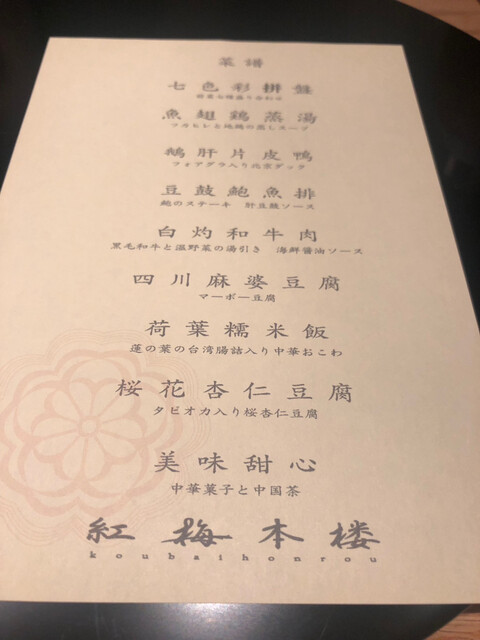 菜譜
七色彩拼盤
前菜七種盛り合わせ
魚翅鶏蒸湯
フカヒレと地鶏の蒸しスープ
鵝肝片皮鴨
フォアグラ入り北京ダック
豆鼓鮑魚排
鮑のステーキ 肝豆鼓ソース
白灼和牛肉
黒毛和牛と温野菜の湯引き 海鮮醤油ソース
四川麻婆豆腐
マーボー豆腐
荷葉糯米飯
蓮の葉の台湾腸詰入り中華おこわ
桜花杏仁豆腐
タピオカ入り桜杏仁豆腐
美味甜心
中華菓子と中国茶
紅梅本楼
koubaihonrou